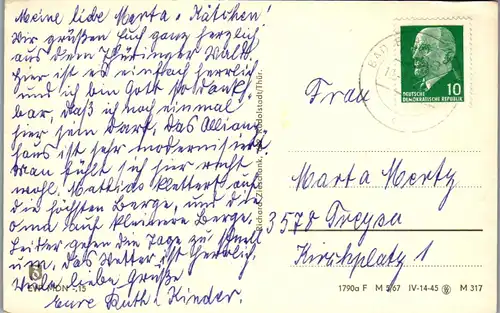 Meine liebe Marta + Kätchen!
Wir grüßen Euch ganz herzlich
aus dem Thüringer Wald.
Hier ist es einfach herrlich
und ich bin Gott so dank=
bar, daß ich noch einmal
hier sein darf, das Allianz=
haus ist sehr modernisiert.
Man fühlt sich hier recht
wohl. Mathias klettert auf
die höchsten Berge, und die
Oma auf kleinere Berge.
Leider gehen die Tage zu schnell
um. Das Wetter ist herrlich.
Viele liebe Grüße
Eure Ruth + Kinder.
EVP MDN -,15
Richard Zieschank, Rudolstadt/Thür.
BAD B
DEUTSCHE
DEMOKRATISCHE REPUBLIK
10
Frau
Marta Mertz
3578 Treysa
Kirchplatz 1
1790a F M 5/67 IV-14-45 M 317